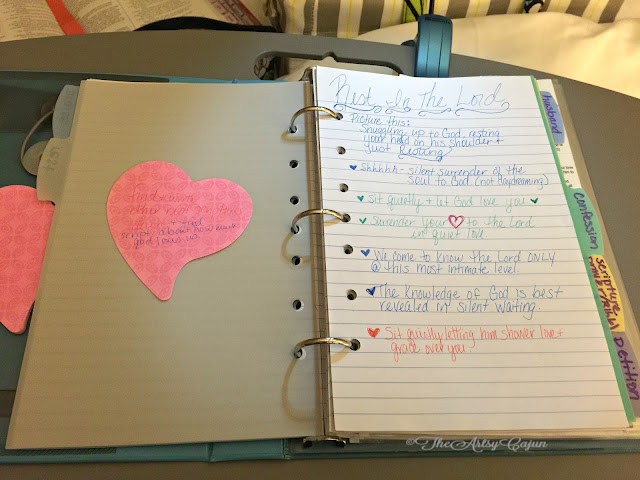 script about how much
god loves us
Rest In The Lord
Picture this:
Snuggling up to God, resting
your head on his shoulder +
just Resting
Shhhhh - silent surrender of the
soul to God (not daydreaming)
Sit quietly + let God love you
Surrender your ♥ to The Lord
in quiet love.
We come to know the Lord ONLY
@ this most intimate level.
The Knowledge of God is best
revealed in silent waiting.
Sit quietly letting him shower love +
grace over you.
husband
Confession
Scripture
petition
©TheArtsyCajun